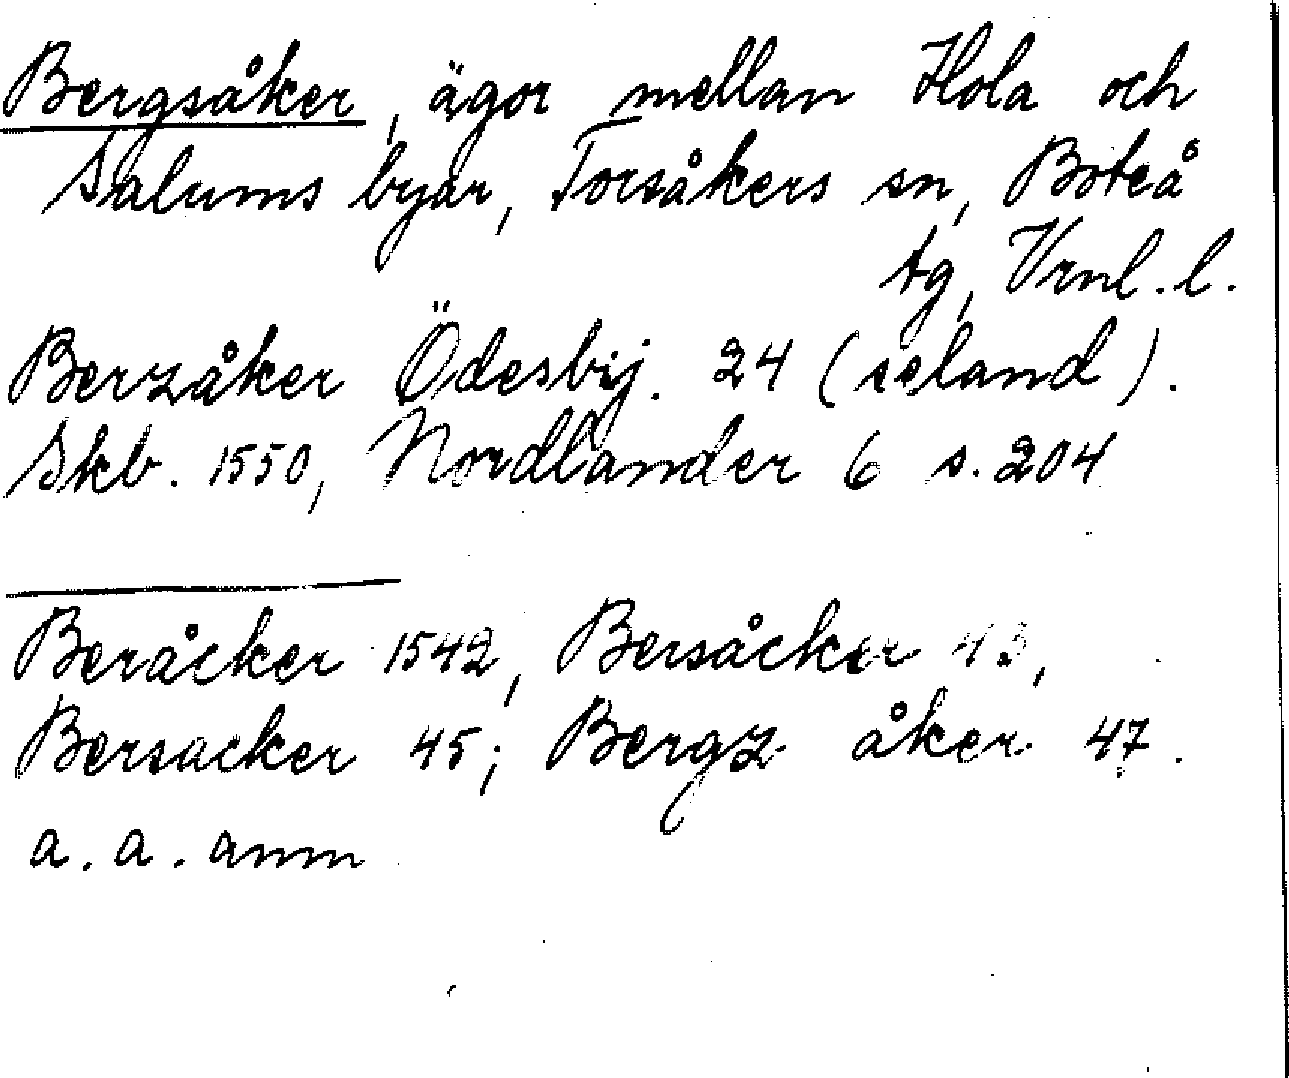 Bergsåker, ägor mellan Hola och
Salums byar, Torsåkers sn, Boteå
tg, Vrnl. l.
Berzåker Ödesbij. 24 (seland).
Skb. 1550, Nordlander 6 s. 204
Beråcker 1542, Bersåcker 43,
Bersacker 45; Bergz åker 47.
a. a. anm